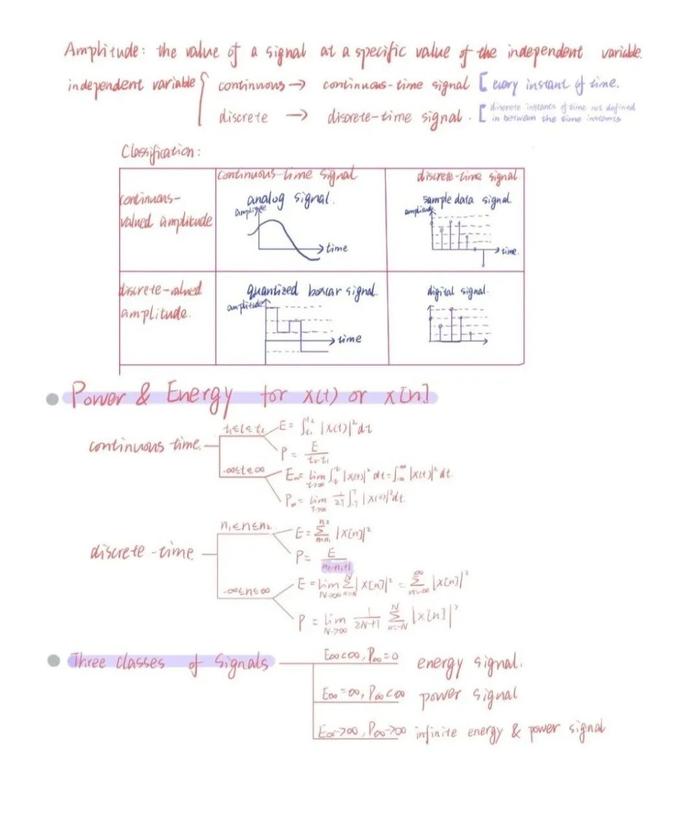 Amplitude: the value of a signal at a specific value of the independent variable.
independent variable { continuous → continuous-time signal [ every instant of time.
discrete → discrete-time signal. [ discrete instants of time not defined
in between the time instants
Classification:
continuous-time signal discrete-time signal
continuous-
valued amplitude
analog signal.
amplitude
time
sample data signal
amplitude
time
discrete-valued
amplitude.
quantized boxcar signal
amplitude
time
digital signal
Power & Energy for x(t) or x[n]
continuous time
t₁≤t≤t₂ E = ∫ |x(t)|² dt
P = E / t₂-t₁
-∞≤t≤∞ E∞ = lim T→∞ ∫ |x(t)|² dt = ∫ |x(t)|² dt
P∞ = lim T→∞ 1/2T ∫ |x(t)|² dt.
discrete-time
n₁≤n≤n₂ E = Σ |x[n]|²
P = E / n₂-n₁+1
-∞≤n≤∞ E = lim N→∞ Σ |x[n]|² = Σ |x[n]|²
P = lim N→∞ 1/2N+1 Σ n=-N N |x[n]|²
Three classes of Signals
E∞<∞, P∞=0 energy signal.
E∞=∞, P∞<∞ power signal
E∞→∞, P∞→∞ infinite energy & power signal